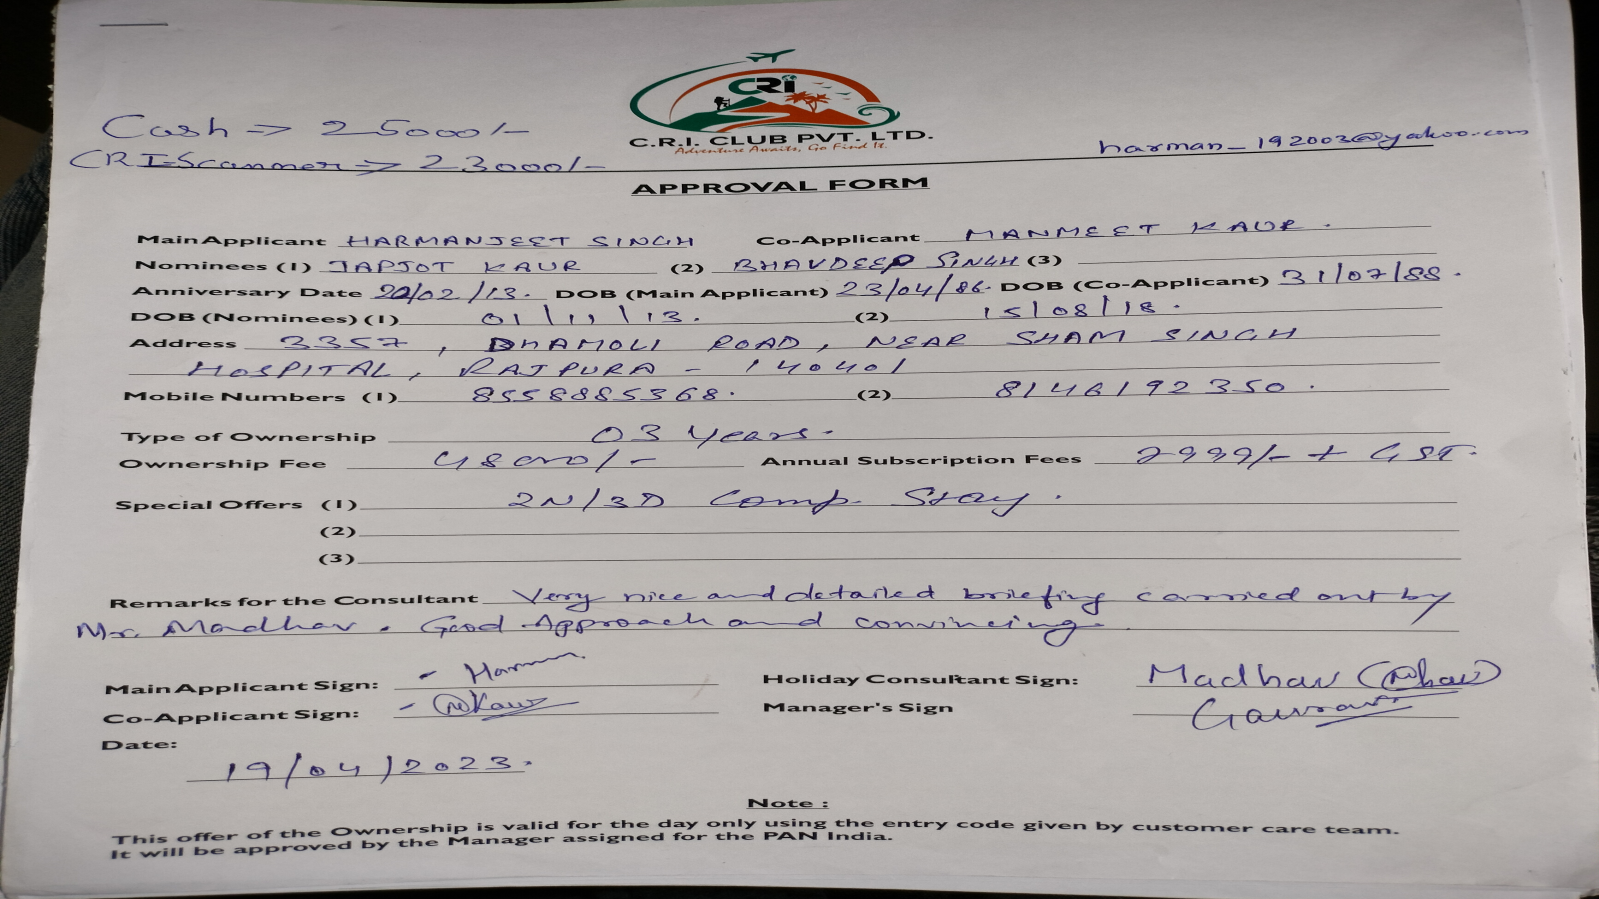 CRI
C.R.I. CLUB PVT. LTD.
Adventure Awaits, Go Find It.
Cash => 25000/-
CRI-Scanner => 23000/-
harman_192003@yahoo.com
APPROVAL FORM
Main Applicant HARMANJEET SINGH Co-Applicant MANMEET KAUR.
Nominees (1) JAPJOT KAUR (2) BHAVDEEP SINGH (3)
Anniversary Date 22/02/13. DOB (Main Applicant) 23/04/86. DOB (Co-Applicant) 31/07/88.
DOB (Nominees) (1) 01/11/13. (2) 15/08/18.
Address 3357, DHAMOLI ROAD, NEAR SHAM SINGH
HOSPITAL, RAJPURA - 140401
Mobile Numbers (1) 8558885368. (2) 8146192350.
Type of Ownership 03 Years.
Ownership Fee 48000/- Annual Subscription Fees 7999/- + GST.
Special Offers (1) 2N/3D Comp. Stay.
(2)
(3)
Remarks for the Consultant Very nice and detailed briefing carried out by
Mr. Madhav. Good Approach and convincing.
Main Applicant Sign: - Harman Holiday Consultant Sign: Madhav
Co-Applicant Sign: - MKaur Manager's Sign Gaurav
Date:
19/04/2023.
Note :
This offer of the Ownership is valid for the day only using the entry code given by customer care team.
It will be approved by the Manager assigned for the PAN India.